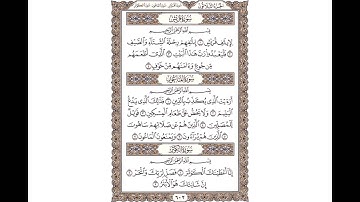 سورة قريش
بسم الله الرحمن الرحيم
لإيلاف قريش ١ إيلافهم رحلة الشتاء والصيف
٢ فليعبدوا رب هذا البيت ٣ الذي أطعمهم
من جوع وءامنهم من خوف ٤
سورة الماعون
بسم الله الرحمن الرحيم
أرءيت الذي يكذب بالدين ١ فذلك الذي يدع
اليتيم ٢ ولا يحض على طعام المسكين ٣ فويل
للمصلين ٤ الذين هم عن صلاتهم ساهون
٥ الذين هم يراءون ٦ ويمنعون الماعون ٧
سورة الكوثر
بسم الله الرحمن الرحيم
إنا أعطيناك الكوثر ١ فصل لربك وانحر ٢
إن شانئك هو الأبتر ٣
٦٠٢